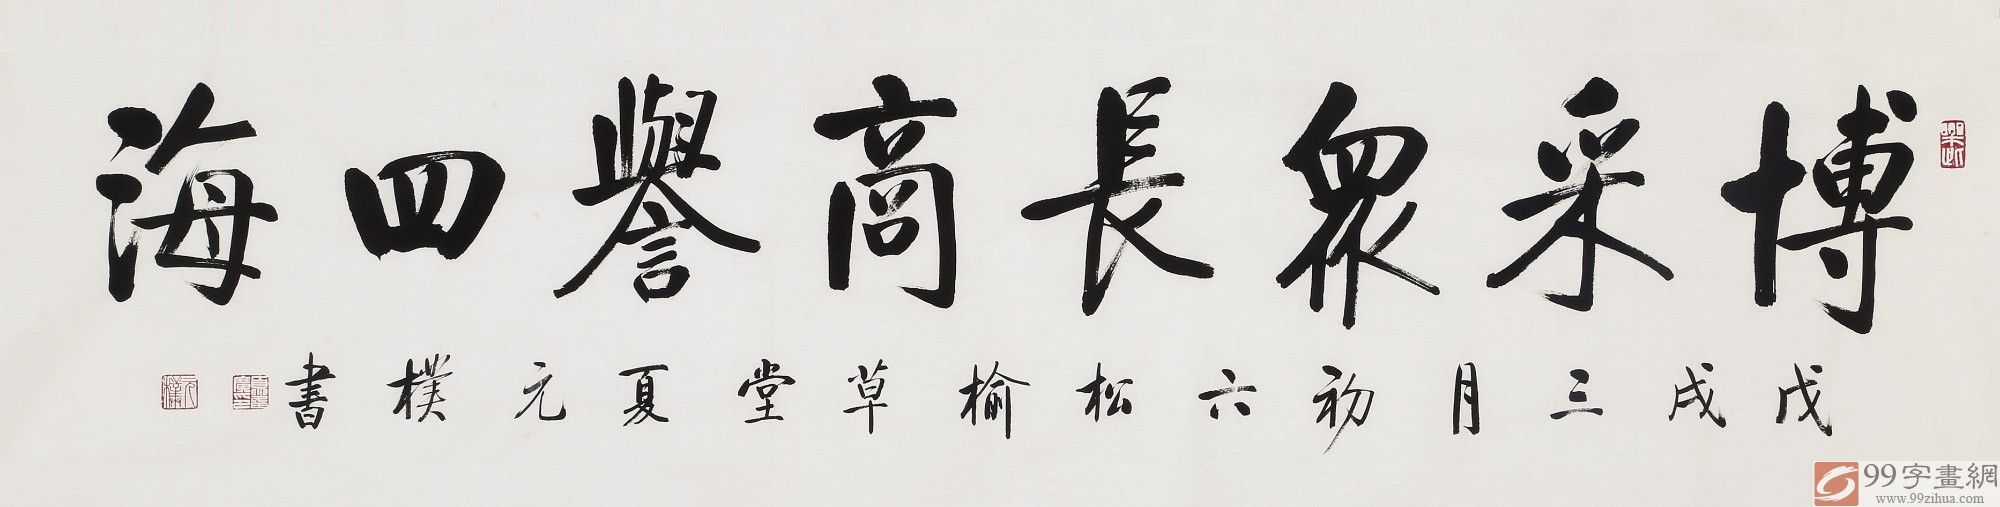 博采眾長商譽四海
戊戌三月初六松榆草堂夏元樸書
99字畫網
www.99zihua.com